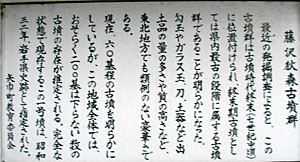 藤沢狄森古墳群
最近の発掘調査によると、この
古墳群は古墳時代終末(七世紀中頃)
に位置付けられ、終末期古墳とし
ては県内最古の段階に属する古墳
群であることが明らかになった。
勾玉やガラス玉、刀、土器など出
土品の量の多さや質の高さなど、
東北地方でも類例のない豪華さで
ある。
現在六〇基程の古墳を明らかに
しているが、この地域全体では、
おそらく二〇〇基は下らない数の
古墳の存在が推定される。完全な
状態で現存するこの一古墳は、昭和
三二年岩手県史跡として指定された。
矢巾町教育委員会